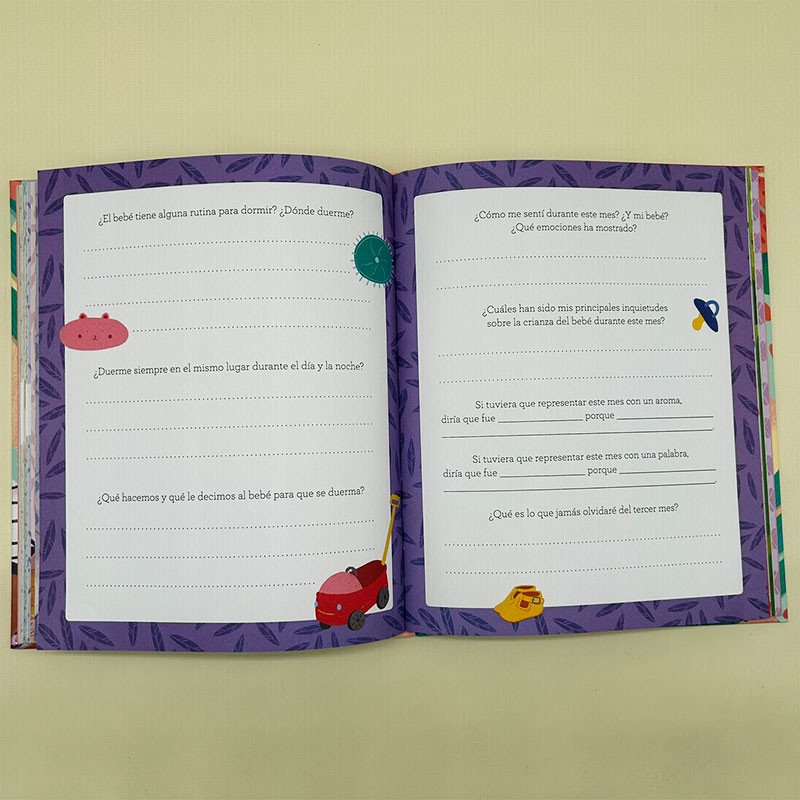 ¿El bebé tiene alguna rutina para dormir? ¿Dónde duerme?
¿Duerme siempre en el mismo lugar durante el día y la noche?
¿Qué hacemos y qué le decimos al bebé para que se duerma?
¿Cómo me sentí durante este mes? ¿Y mi bebé?
¿Qué emociones ha mostrado?
¿Cuáles han sido mis principales inquietudes
sobre la crianza del bebé durante este mes?
Si tuviera que representar este mes con un aroma,
diría que fue ____________________ porque ____________________
Si tuviera que representar este mes con una palabra,
diría que fue ____________________ porque ____________________
____________________.
¿Qué es lo que jamás olvidaré del tercer mes?